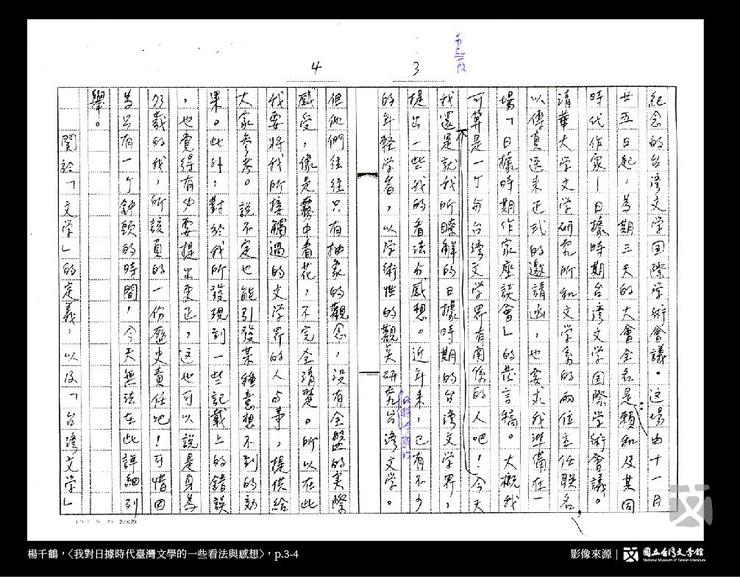 3
紀念的台湾文学国際学術會議。这場由十一月
廿五日起,為期三天的大會全名是賴和及其同
時代作家—日據時期台湾文学国際学術會議。
清華大学文学研究所和文学系的兩位主任联名
以傳真送来正式的邀請函,也要求我準備在一
場「日據時期作家座談會」的發言稿。大概我
可算是一个与台湾文学界有関係的人吧!今天
我還是就我所瞭解的日據時期的台湾文学界,
提出一些我的看法与感想。近年来,已有不少
的年輕学者,以学術性的觀点研究台湾文学。
4
但他們往往只有抽象的觀念,没有全盤的实際
感受,像是霧中看花,不完全清楚。所以在此
我要將我所接触過的文学界的人与事,提供給
大家参考。說不定也能引發某種意想不到的効
果。此外,對於我所發現到一些記載上的錯誤
,也覺得有必要提出更正,这也可以說是身為
歲的我,所該負的一份歷史責任吧!可惜因
為只有一个鐘頭的時間,今天無法在此詳細列
舉。
関於「文学」的定義,以及「台湾文学」
楊千鶴,〈我對日據時代臺灣文學的一些看法與感想〉,p.3-4
影像來源|國立台灣文學館
National Museum of Taiwan Literature